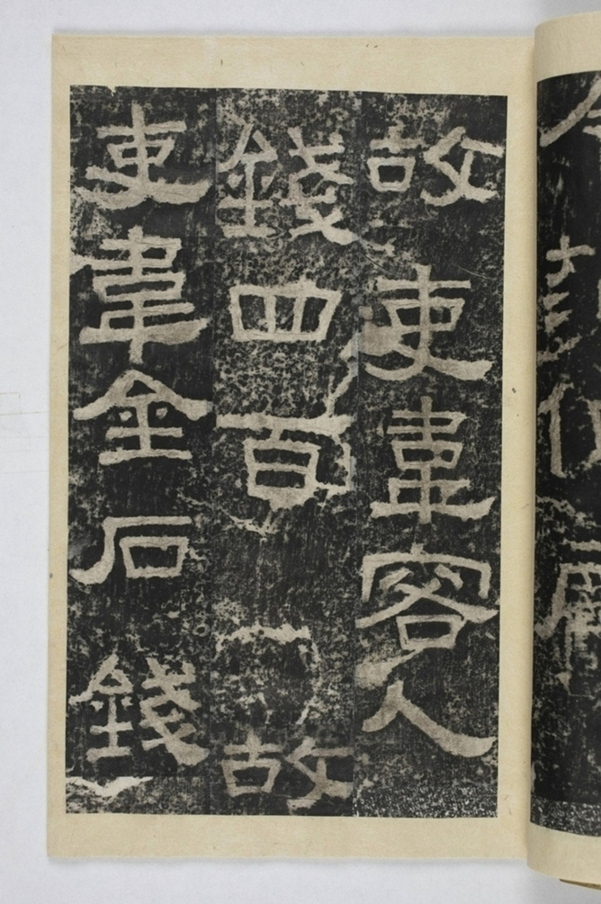 故吏韋容人
錢四百故
吏韋金石錢